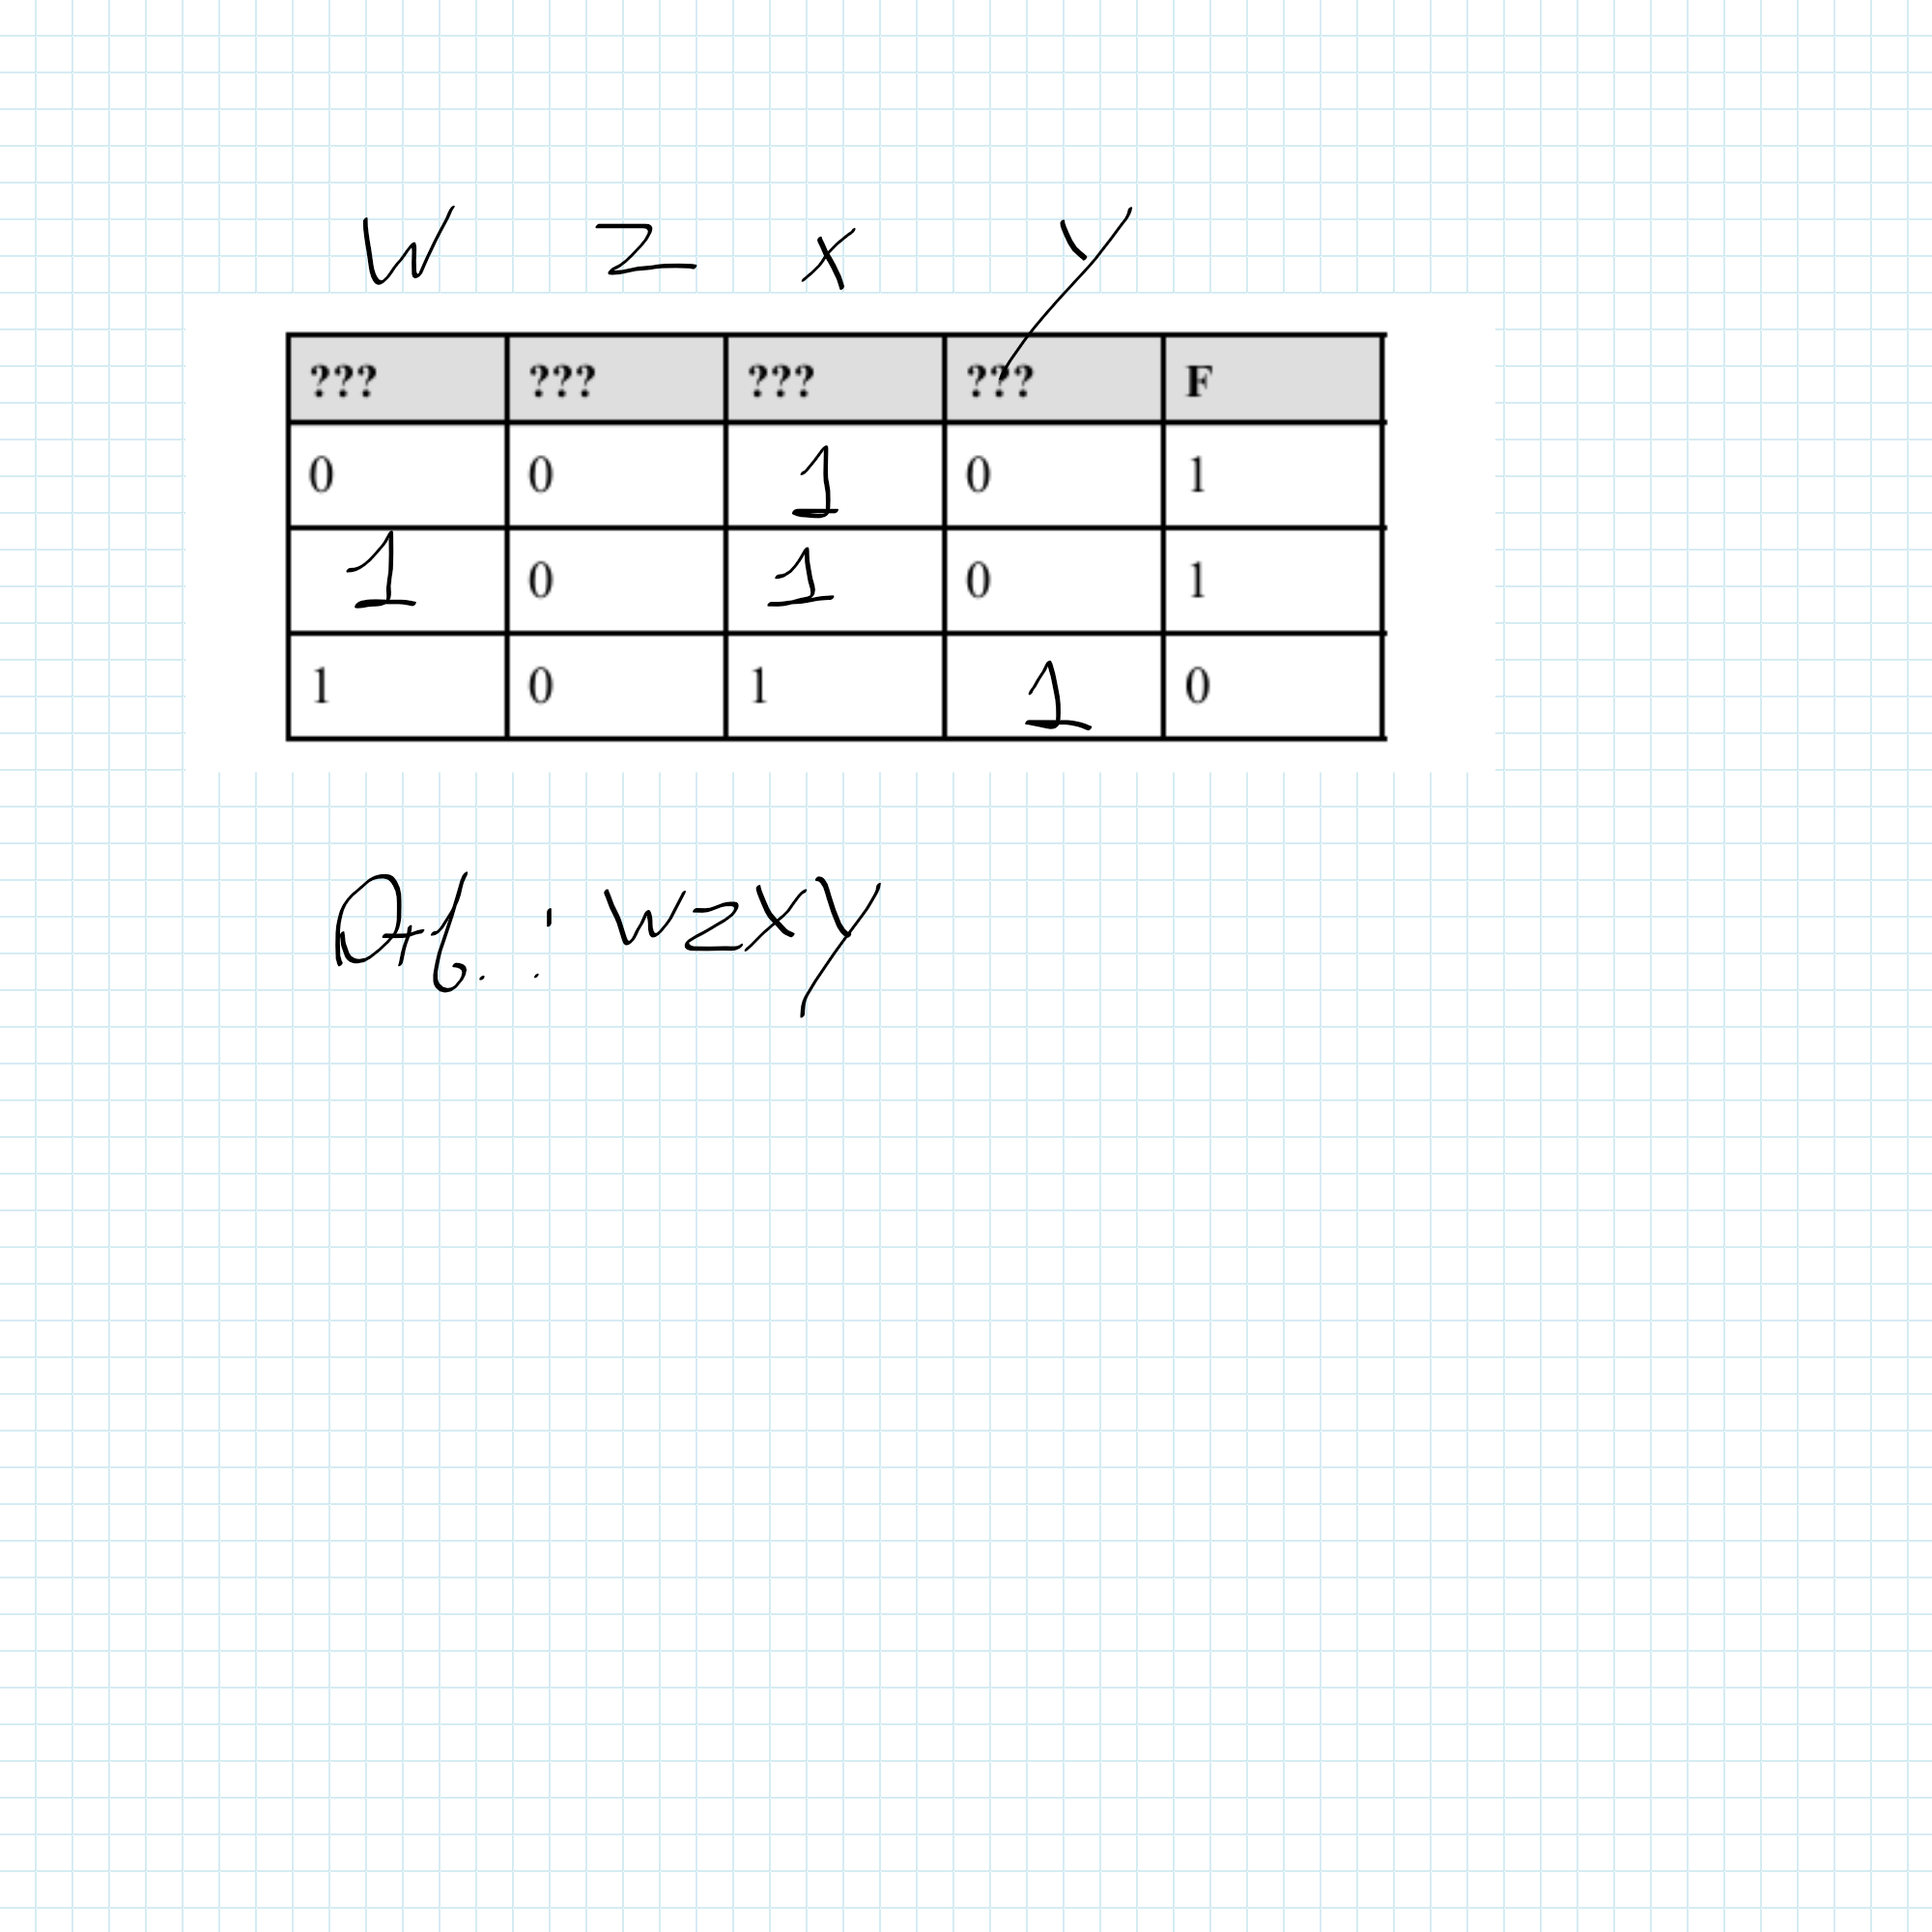 W Z X Y
??? ??? ??? ??? F
0 0 1 0 1
1 0 1 0 1
1 0 1 1 0
Отв. : WZXY